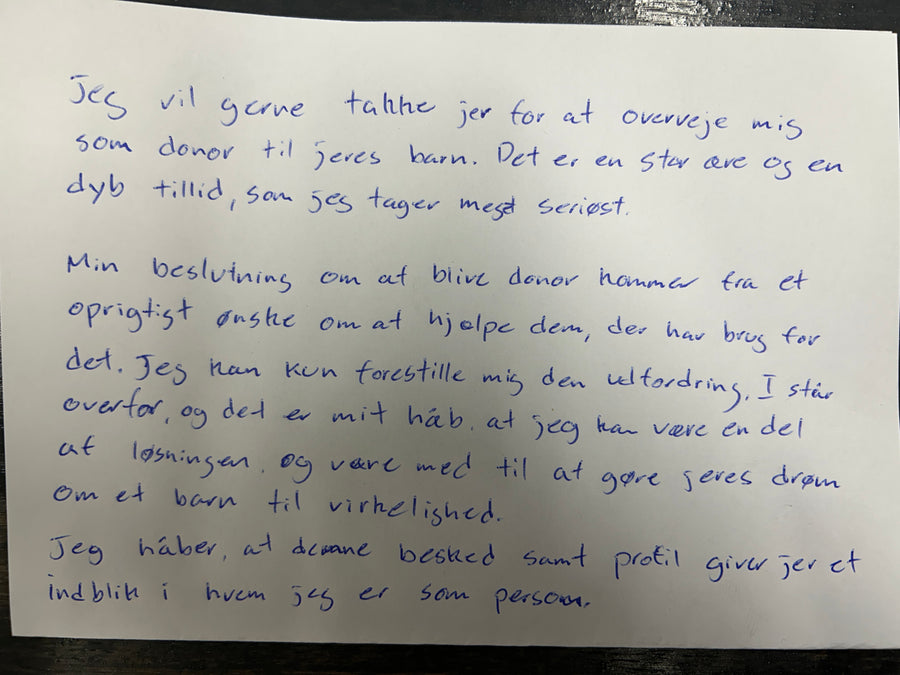 Jeg vil gerne takke jer for at overveje mig
som donor til jeres barn. Det er en stor ære og en
dyb tillid, som jeg tager meget seriøst.
Min beslutning om at blive donor kommer fra et
oprigtigt ønske om at hjælpe dem, der har brug for
det. Jeg kan kun forestille mig den udfordring, I står
overfor, og det er mit håb, at jeg kan være en del
af løsningen, og være med til at gøre jeres drøm
om et barn til virkelighed.
Jeg håber, at denne besked samt profil giver jer et
indblik i hvem jeg er som person.